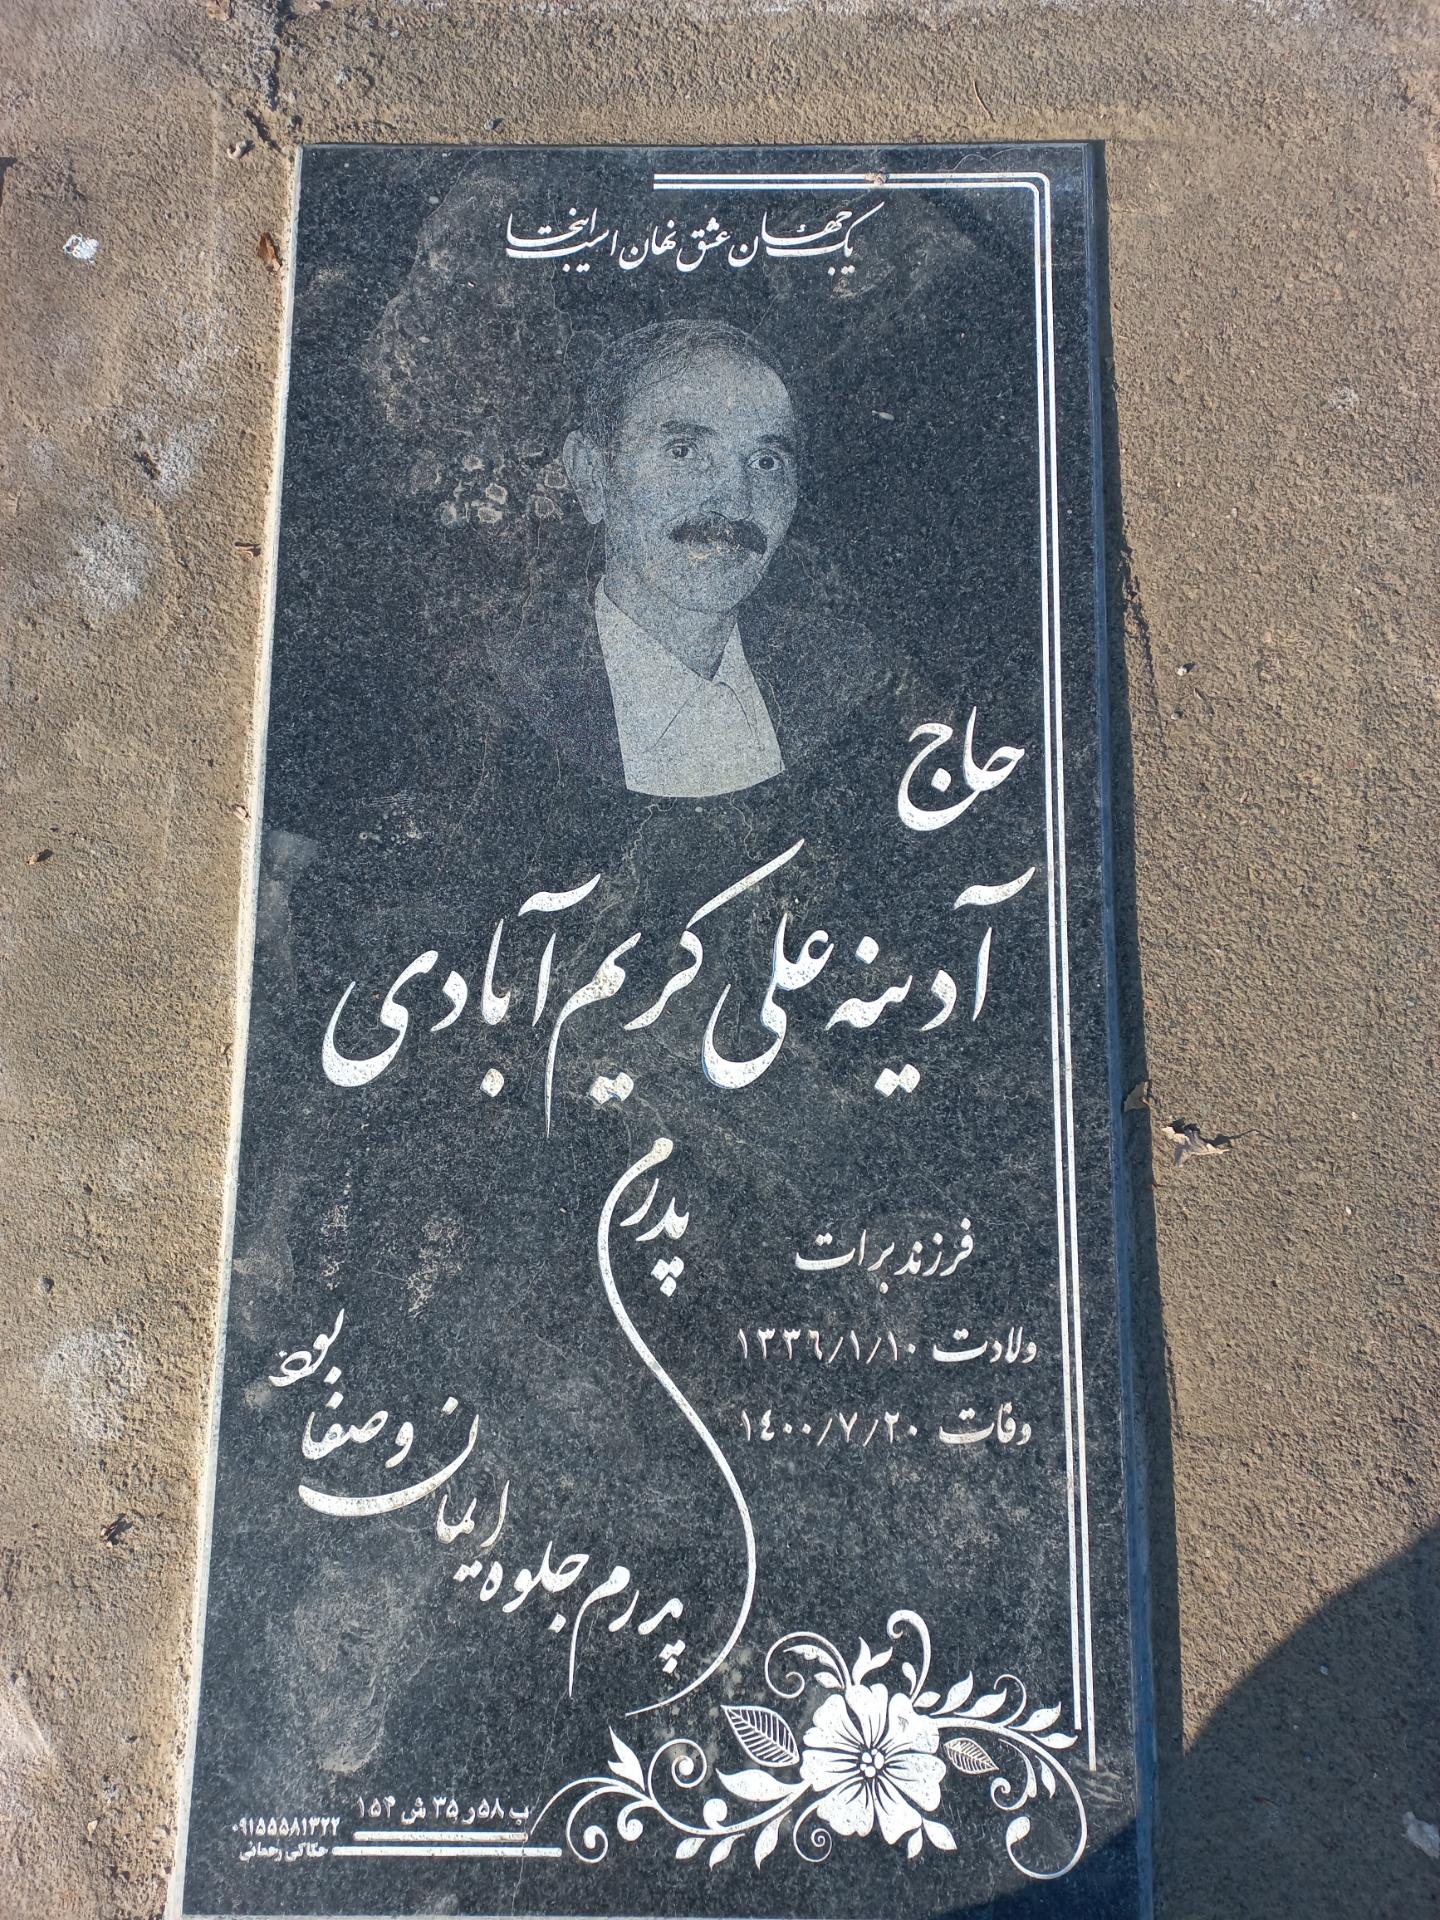 یک جهان عشق نهان است اینجا
حاج
آدینه علی کریم آبادی
فرزند برات
ولادت ۱۳۳۶/۱/۱۰
وفات ۱۴۰۰/۷/۲۰
پدرم
پدرم جلوه ایمان و صفا بود
ب ۵۸ ر ۳۵ ش ۱۵۴
۰۹۱۵۵۵۸۱۳۲۲
حکاکی رحمانی